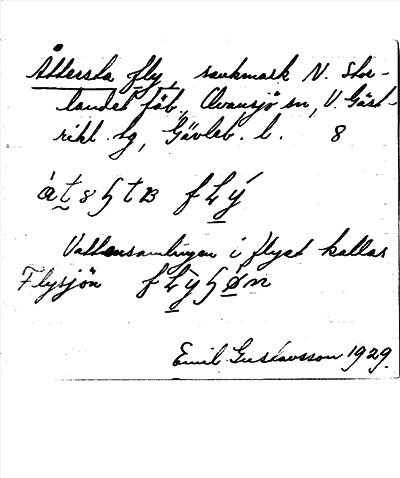 Åttersta fly, sankmark N. Stor-
landet fäb., Ovansjö sn, V. Gäst-
rikl. tg, Gävleb. l. 8
fLý
Vattensamlingen i flyet kallas
Flysjön
Emil Gustavsson 1929.